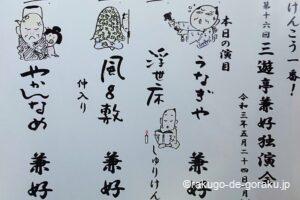 けんこう一番！
第十六回 三遊亭兼好独演会
令和三年五月二十四日
本日の演目
うなぎや 兼好
浮世床 しゅりけん
風呂敷 兼好
仲入り
やかんなめ 兼好
©rakugo-de-goraku.jp